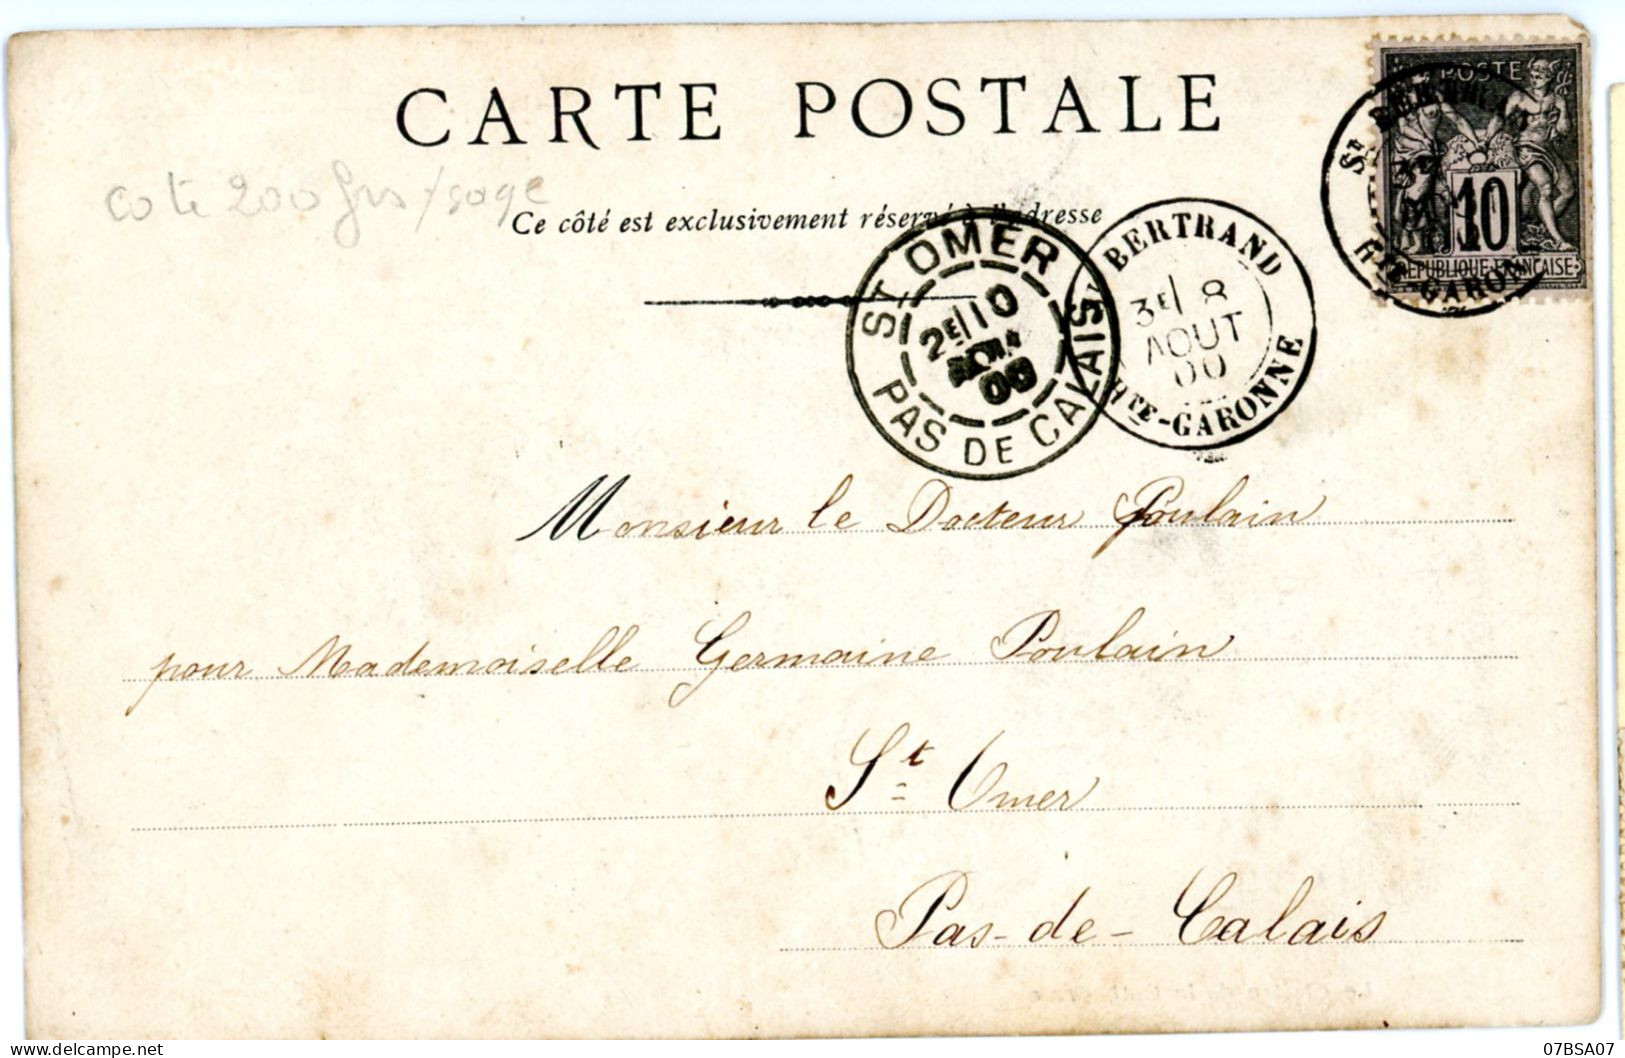 CARTE POSTALE
cote 200 frs / sage
Ce côté est exclusivement réservé à l'adresse
POSTE
10
REPUBLIQUE FRANÇAISE
St BERTRAND
3E
Hte-GARONNE
St BERTRAND
3E 8
AOUT
00
Hte-GARONNE
ST OMER
2E 10
00
PAS DE CALAIS
Monsieur le Docteur Poulain
pour Mademoiselle Germaine Poulain
St Omer
Pas-de-Calais
07BSA07